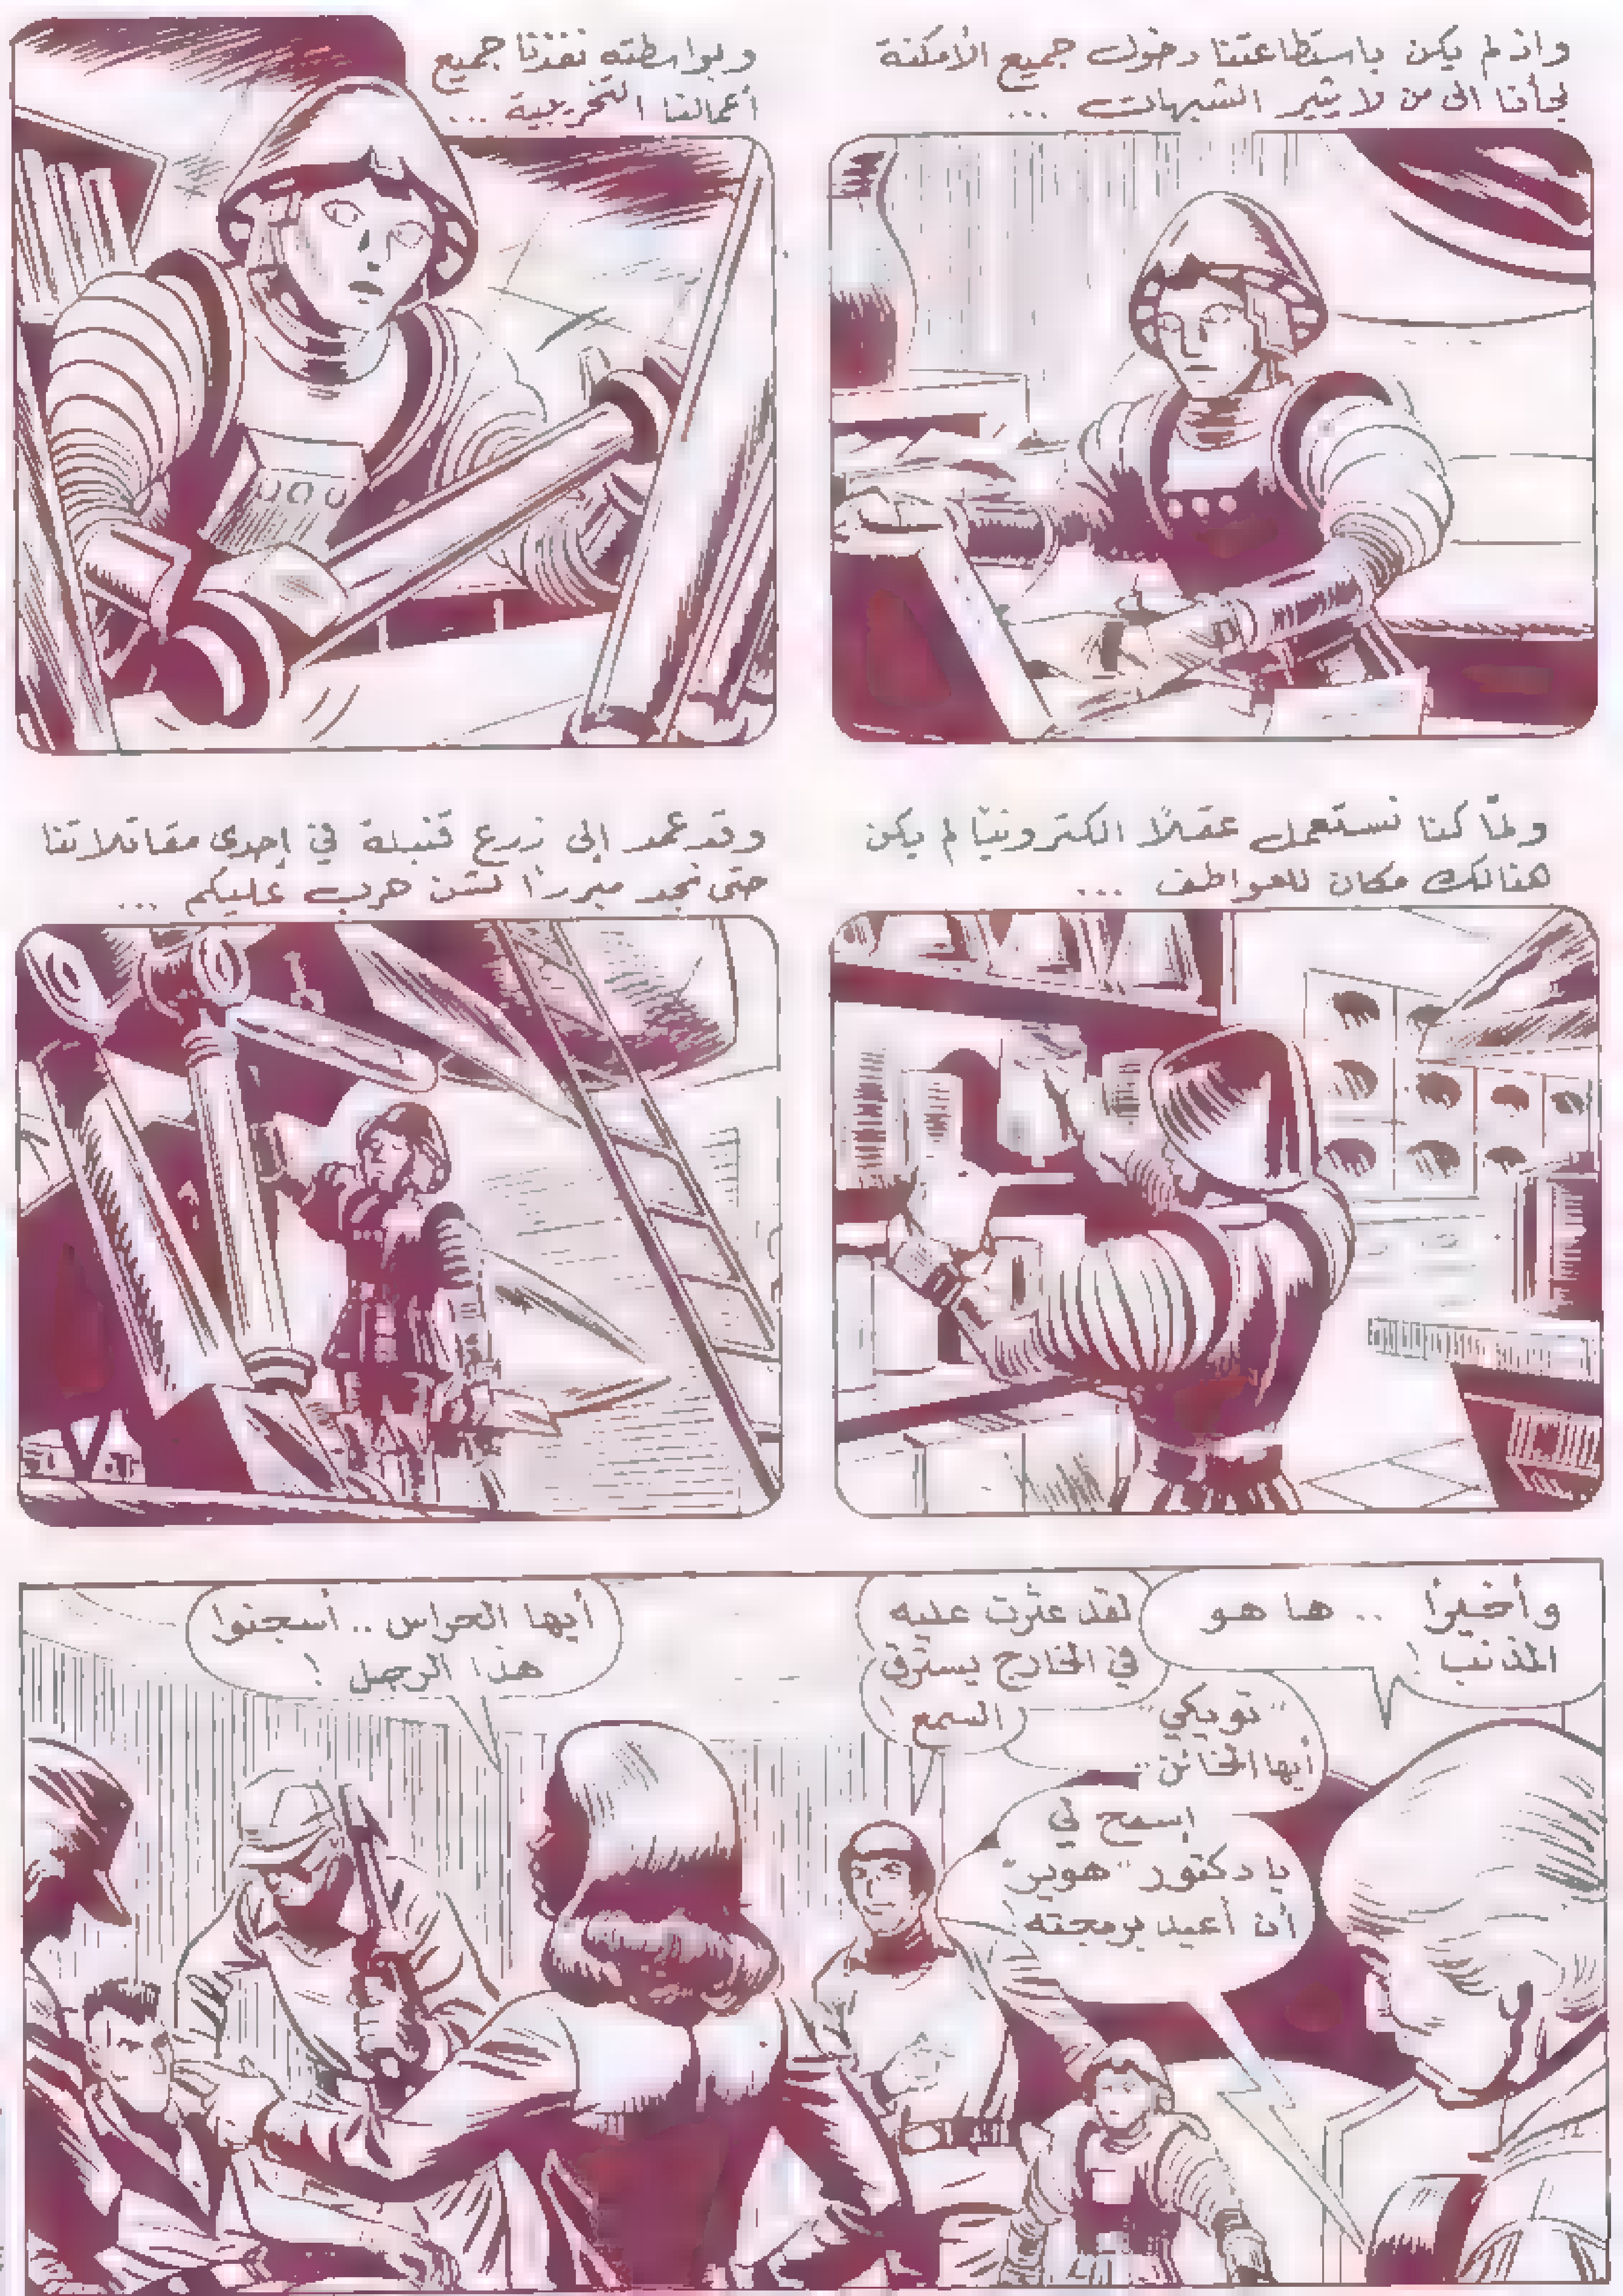 واذ لم يكن باستطاعتنا دخول جميع الأمكنة
لجأنا الى من لا يثير الشبهات ...
وبواسطته نفذنا جميع
أعمالنا التخريبية ...
ولمّا كنا نستعمل عقلاً الكترونيّا لم يكن
هنالك مكان للعواطف ...
وقد عمد إلى زرع قنبلة في إحدى مقاتلاتنا
حتى نجد مبررًا لشن حرب عليكم ...
وأخيرًا .. ها هو
المذنب !
لقد عثرت عليه
في الخارج يسترق
السمع
"تويكي"
أيها الخائن ..
إسمح لي
يا دكتور "هوير"
أن أعيد برمجته
أيها الحراس .. أسجنوا
هذا الرجل !